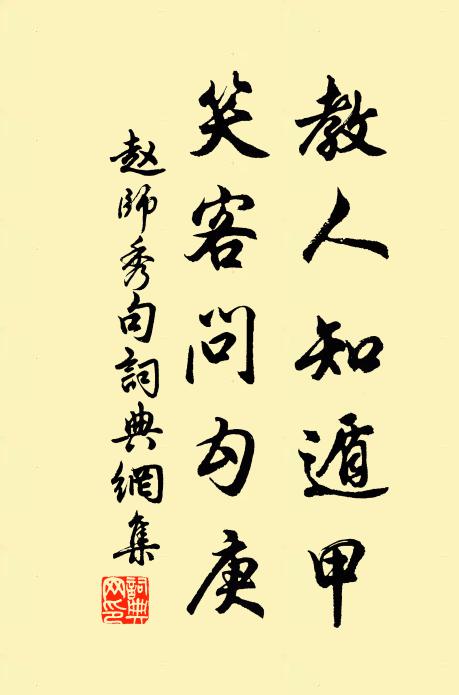 教人知遁甲
笑客问勾庚
赵師秀句詞典網集
詞典网印